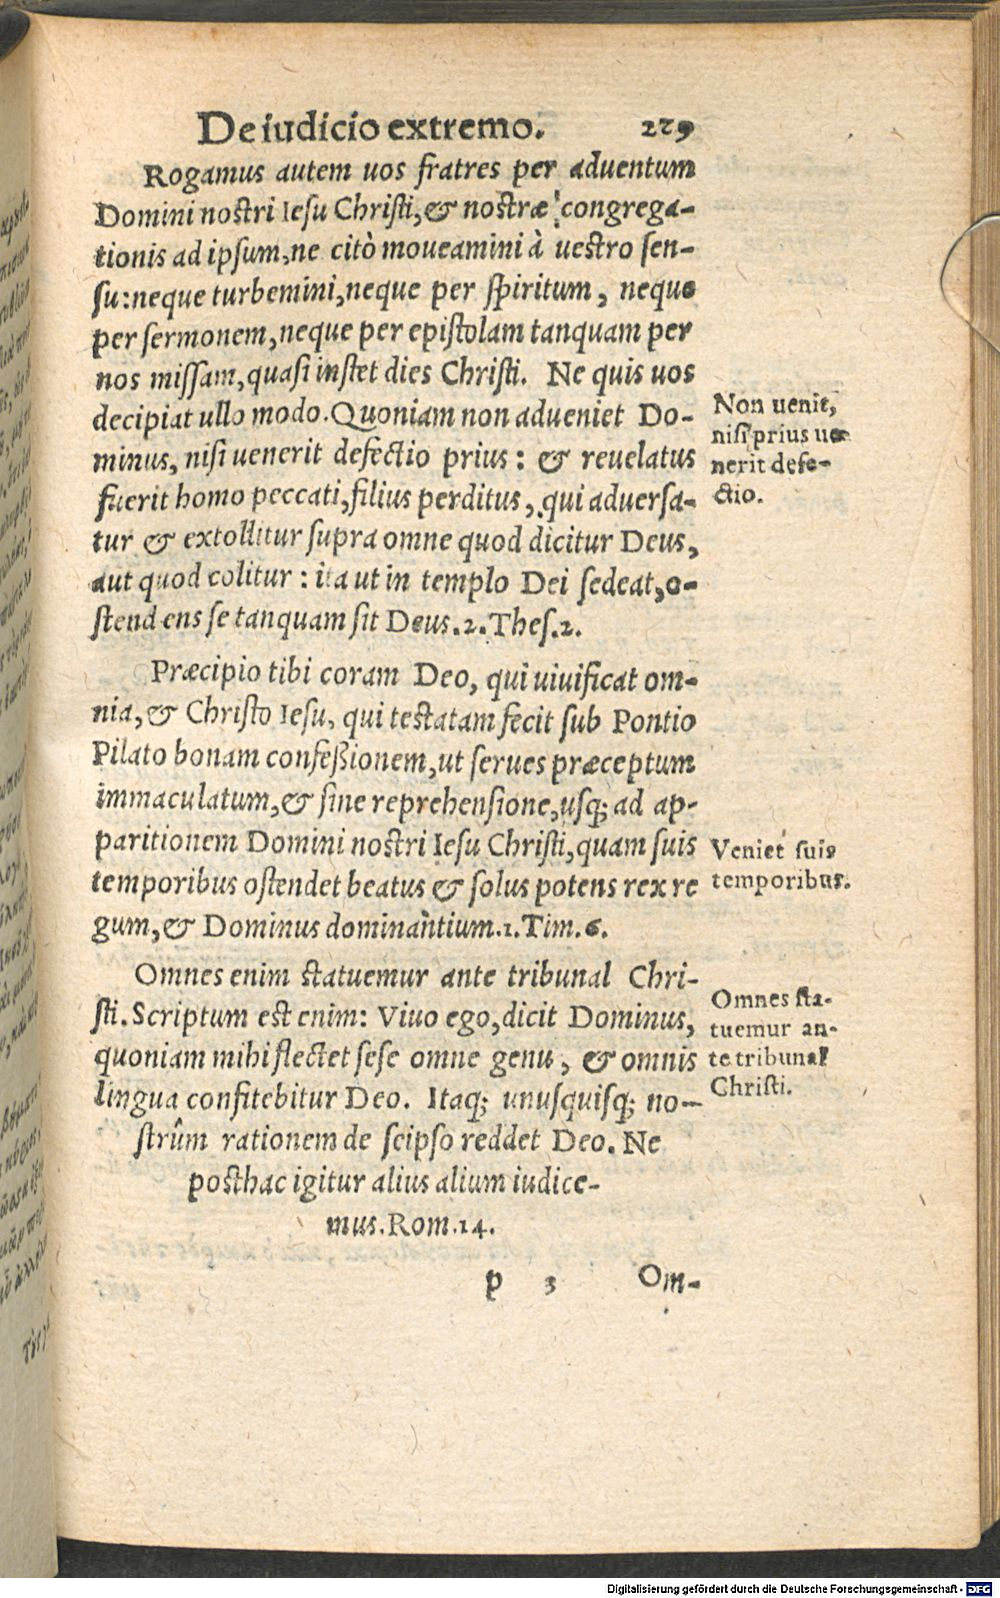 De iudicio extremo. 229
Rogamus autem uos fratres per aduentum
Domini nostri Iesu Christi, & nostræ congrega-
tionis ad ipsum, ne citò moueamini à uestro sen-
su: neque turbemini, neque per spiritum, neque
per sermonem, neque per epistolam tanquam per
nos missam, quasi instet dies Christi. Ne quis uos
decipiat ullo modo. Quoniam non adueniet Do-
minus, nisi uenerit defectio prius: & reuelatus
fuerit homo peccati, filius perditus, qui aduersa-
tur & extollitur supra omne quod dicitur Deus,
aut quod colitur: ita ut in templo Dei sedeat, o-
stendens se tanquam sit Deus. 2. Thes. 2.
Non uenit,
nisi prius ue
nerit defe-
ctio.
Præcipio tibi coram Deo, qui uiuificat om-
nia, & Christo Iesu, qui testatam fecit sub Pontio
Pilato bonam confeßionem, ut serues præceptum
immaculatum, & sine reprehensione, usq; ad ap-
paritionem Domini nostri Iesu Christi, quam suis
temporibus ostendet beatus & solus potens rex re
gum, & Dominus dominantium. 1. Tim. 6.
Veniet suis
temporibus.
Omnes enim statuemur ante tribunal Chri-
sti. Scriptum est enim: Viuo ego, dicit Dominus,
quoniam mihi flectet sese omne genu, & omnis
lingua confitebitur Deo. Itaq; unusquisq; no-
strûm rationem de seipso reddet Deo. Ne
posthac igitur alius alium iudice-
mus. Rom. 14.
Omnes sta-
tuemur an-
te tribunal
Christi.
p 3 Om-
Digitalisierung gefördert durch die Deutsche Forschungsgemeinschaft - DFG